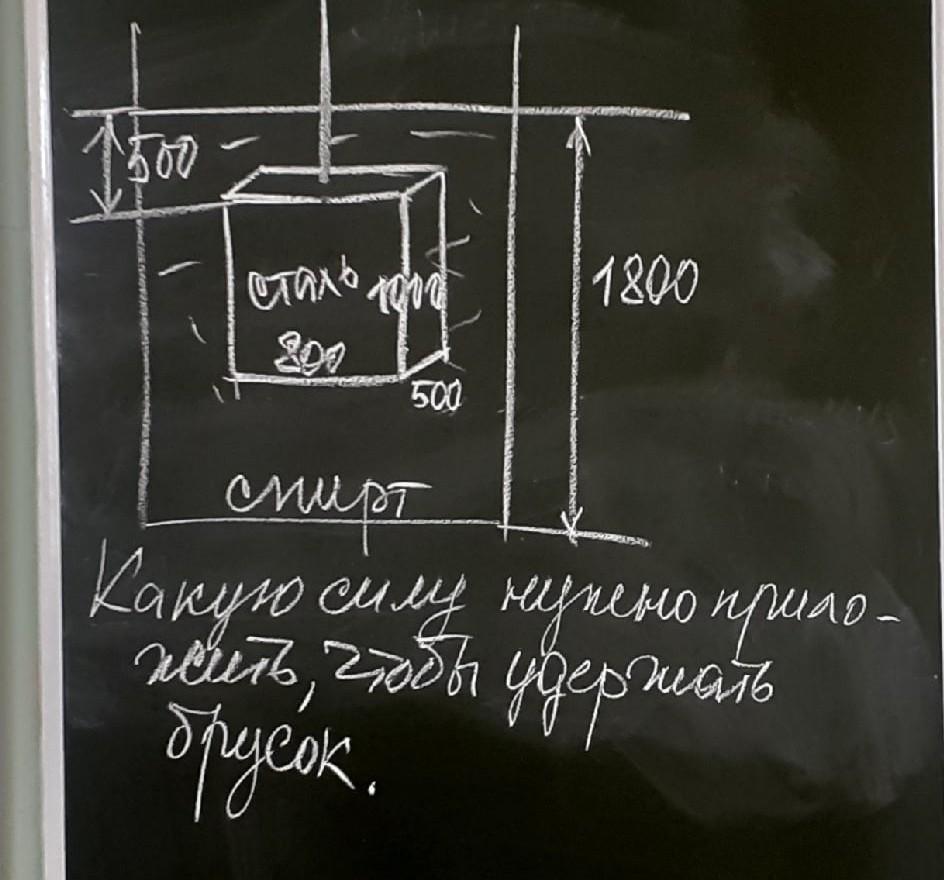 500
сталь 1000
1800
800
500
спирт
Какую силу нужно прило-
жить, чтобы удержать
брусок.